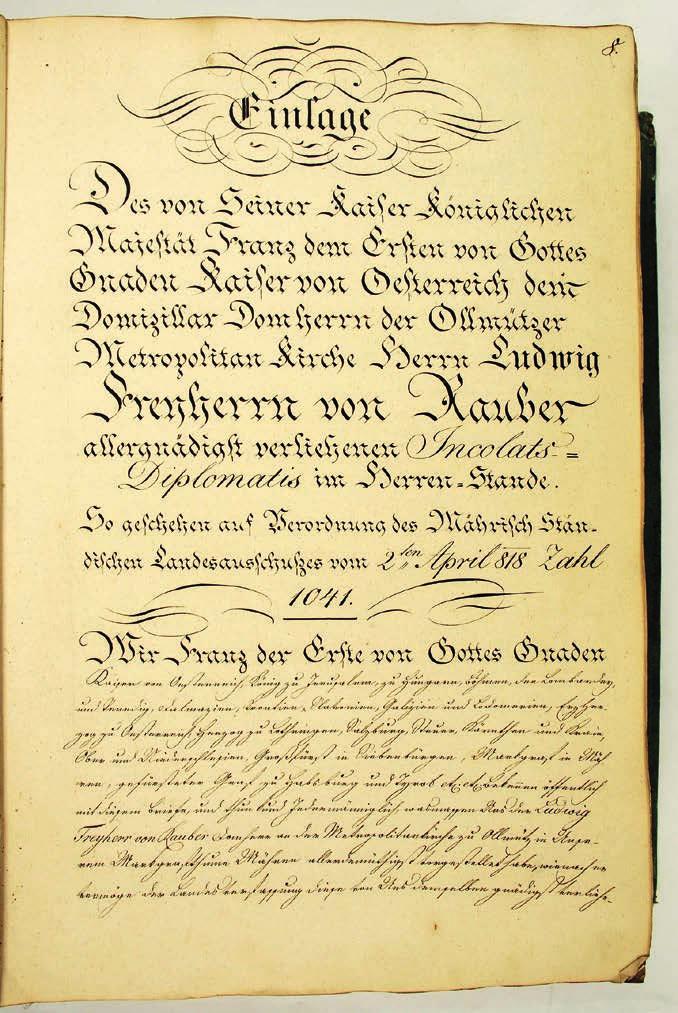 8.
Einlage
Des von Seiner Kaiser Königlichen
Majestät Franz dem Ersten von Gottes
Gnaden Kaiser von Oesterreich dem
Domizillar Domherrn der Ollmützer
Metropolitan Kirche Herrn Ludwig
Freyherrn von Rauber
allergnädigst verliehenen Incolats-=
Diplomatis im Herren=Stande.
So geschehen auf Verordnung des Mährisch Stän-
dischen Landesausschußes vom 2ten April 818 Zahl
1041.
Wir Franz der Erste von Gottes Gnaden
Kaiser von Oesterreich, König zu Jerusalem, zu Hungarn, Böhmen, der Lombardey,
und Venedig, Dalmazien, Croatien, Slavonien, Galizien und Lodomerien, Erzher-
zog zu Oesterreich, Herzog zu Lothringen, Salzburg, Steyer, Kärnthen und Krain,
Ober und Niederschlesien, Großfürst in Siebenbürgen, Markgraf in Mäh-
ren, gefürsteter Graf zu Habsburg und Tyrol etc. etc. Bekennen öffentlich
mit diesem Briefe, und thun kund Jedermänniglich wasmassen Uns der Ludwig
Freyherr von Rauber Domherr an der Metropolitankirche zu Ollmütz in Unse-
rem Markgrafthume Mähren allerdemüthigst vorgestellet habe, wienach er
vermöge der Landesverfassung diese von Uns demselben gnädigst verliehe-